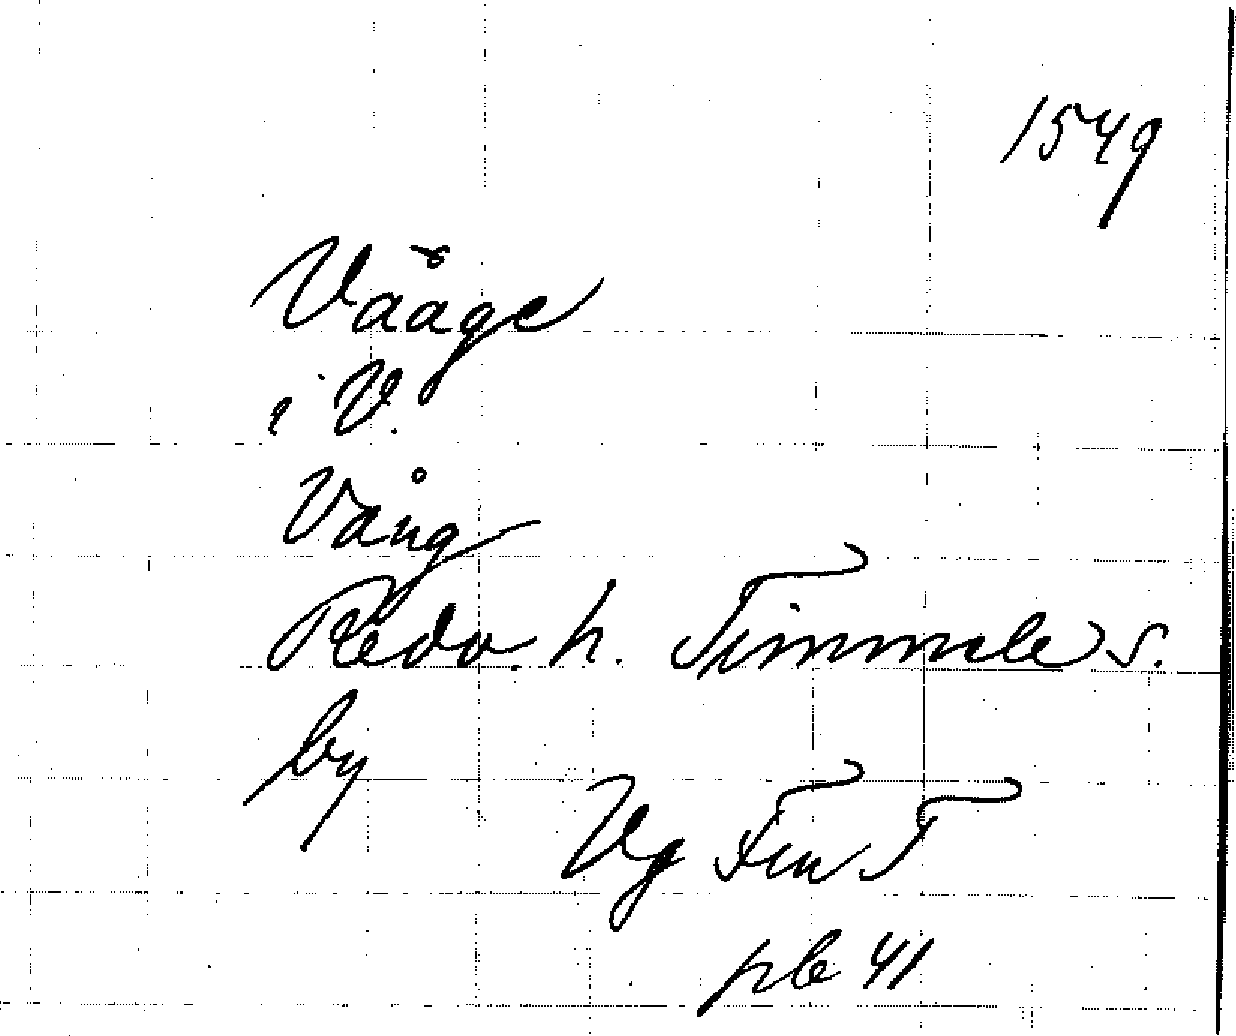 1549
Vååge
i V.
Vång
Redv. h. Timmele s.
by
Vg Fru T
pb 41